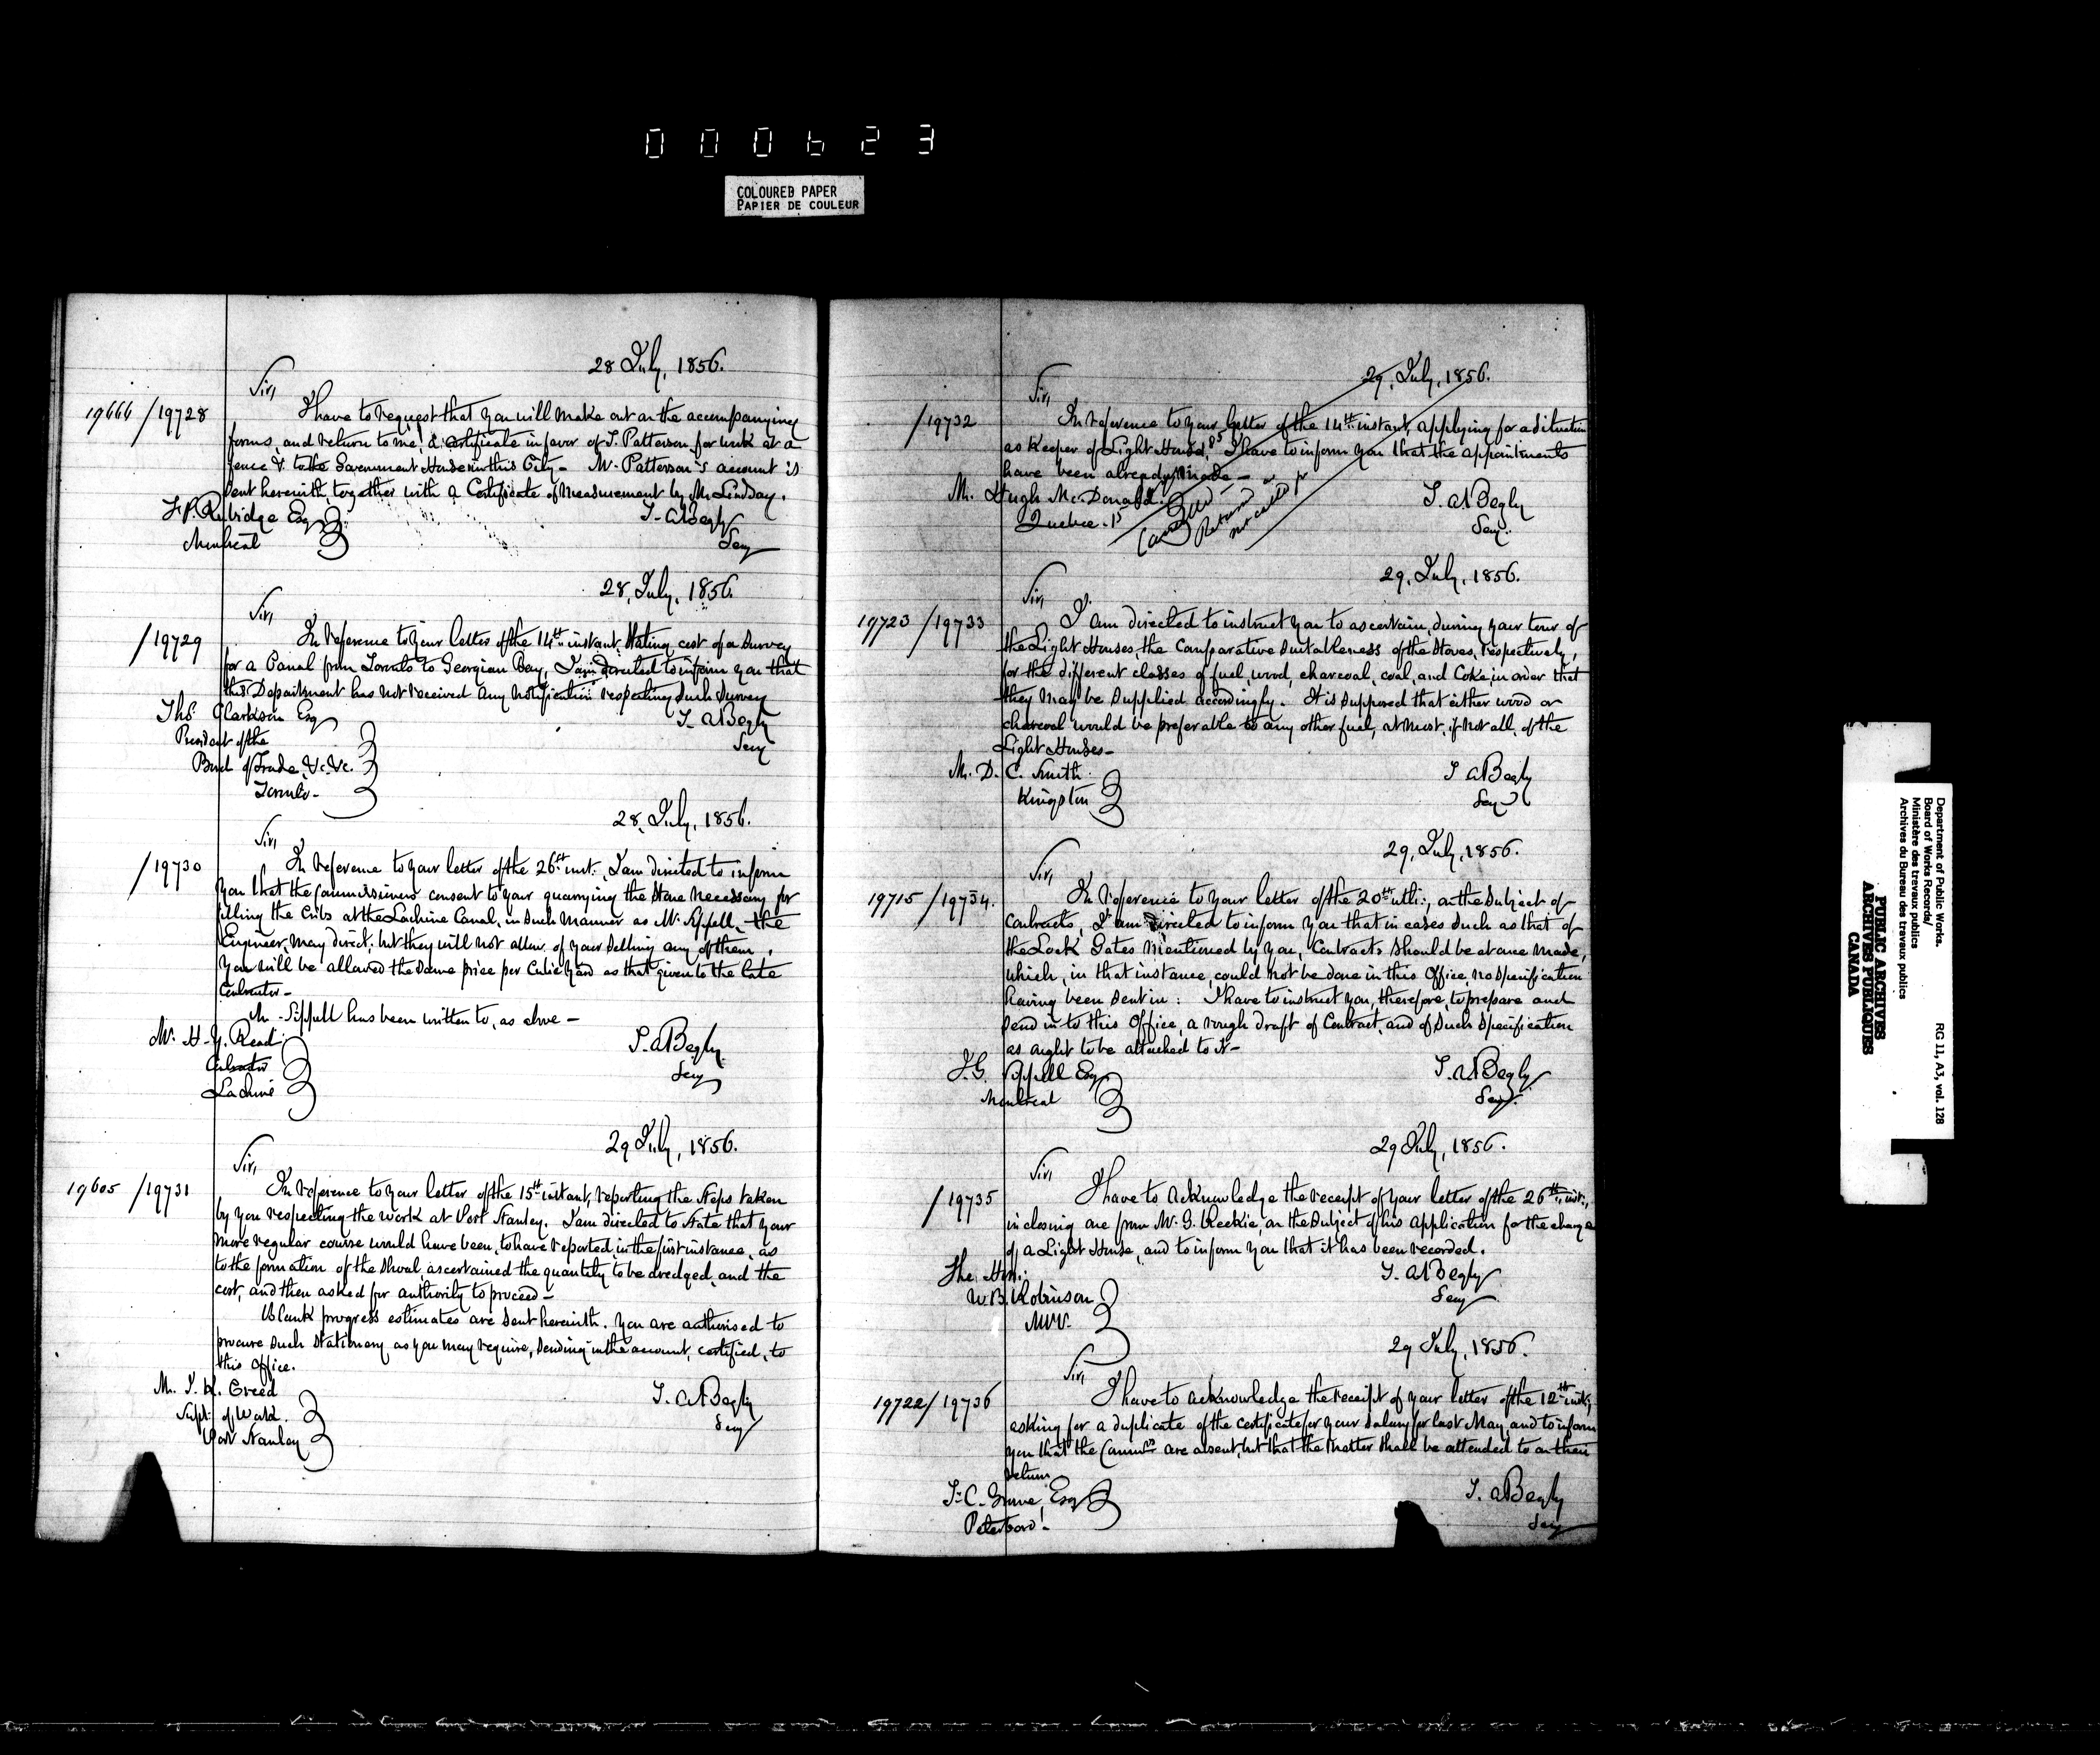 000623
COLOURED PAPER
PAPIER DE COULEUR
28 July, 1856.
Sir,
19666 / 19728
I have to request that you will make out on the accompanying
forms, and return to me, a certificate in favor of J. Patterson for work at a
fence &c to the Government House in this City - Mr. Patterson's account is
sent herewith together with a Certificate of Measurement by Mr. Lindsay.
F. P. Rubidge Esq
Montreal
T. A. Begly
Secy
28, July, 1856.
Sir,
/ 19729
In reference to your letter of the 14th instant, stating cost of a Survey
for a Canal from Toronto to Georgian Bay, I am directed to inform you that
this Department has not received any notification respecting such Survey
Ths. Clarkson Esq
President of the
Board of Trade, &c. &c.
Toronto -
T. A Begly
Secy
28, July, 1856.
Sir,
/ 19730
In reference to your letter of the 26th inst., I am directed to inform
you that the Commissioners consent to your quarrying the Stone necessary for
filling the Cribs at the Lachine Canal, in such manner as Mr. Sippell, the
Engineer, may direct; but they will not allow of your selling any of them,
You will be allowed the same price per Cubic Yard as that given to the late
Contractor -
Mr - Sippell has been written to, as above -
Mr. H. Y. Read
Contractor
Lachine
T. A Begly
Secy
29 July, 1856.
Sir,
19605 / 19731
In reference to your letter of the 15th instant, reporting the steps taken
by you respecting the work at Port Stanley. I am directed to state that your
more regular course would have been, to have reported, in the first instance, as
to the formation of the shoal, ascertained the quantity to be dredged, and the
cost, and then asked for authority to proceed -
Blank progress estimates are sent herewith. You are authorised to
procure such stationery as you may require, sending in the account, certified, to
this office.
Mr. J. H. Creed
Supt. of Work.
Port Stanley
T. A Begly
Secy
29, July, 1856.
Sir,
/ 19732
In reference to your letter of the 14th instant, applying for a situation
as Keeper of Light House, I have to inform you that the appointments
have been already made -
Mr. Hugh McDonald.
Quebec -
Cancelled -
Returned
not called for
T. A Begly
Secy.
29, July, 1856.
Sir,
19723 / 19733
I am directed to instruct you to ascertain, during your tour of
the Light Houses, the Comparative Suitableness of the Stoves, respectively,
for the different classes of fuel, wood, charcoal, coal, and Coke, in order that
they may be supplied accordingly. It is supposed that either wood or
charcoal would be preferable to any other fuel, at most, if not all, of the
Light Houses -
Mr. D. C. Smith
Kingston
T A Begly
Secy
29, July, 1856.
Sir,
19715 / 19734.
In reference to your letter of the 20th ulto., on the subject of
Contracts, I am directed to inform you that in cases such as that of
the Lock Gates mentioned by you, Contracts should be at once made,
which, in that instance, could not be done in this Office, no Specification
having been sent in: I have to instruct you, therefore, to prepare and
send in to this Office, a rough draft of Contract, and of such Specification
as ought to be attached to it -
J. G. Sippell Esq
Montreal
T. A Begly
Secy.
29 July, 1856.
Sir,
/ 19735
I have to acknowledge the receipt of your letter of the 26th inst.,
inclosing one from Mr. G. Keekie, on the subject of his application for the charge
of a Light House, and to inform you that it has been recorded.
The Hon.
W. B. Robinson
MPP.
T. A Begly
Secy
29 July, 1856.
Sir,
19722 / 19736
I have to acknowledge the receipt of your letter of the 12th inst.,
asking for a duplicate of the certificate for your salary for last May, and to inform
you that the Commrs. are absent, but that the matter shall be attended to on their
return
Peterboro' -
T. A Begly
Secy
Department of Public Works.
Board of Works Records/
Ministère des travaux publics
Archives du Bureau des travaux publics
RG 11, A3, vol. 128
PUBLIC ARCHIVES
ARCHIVES PUBLIQUES
CANADA